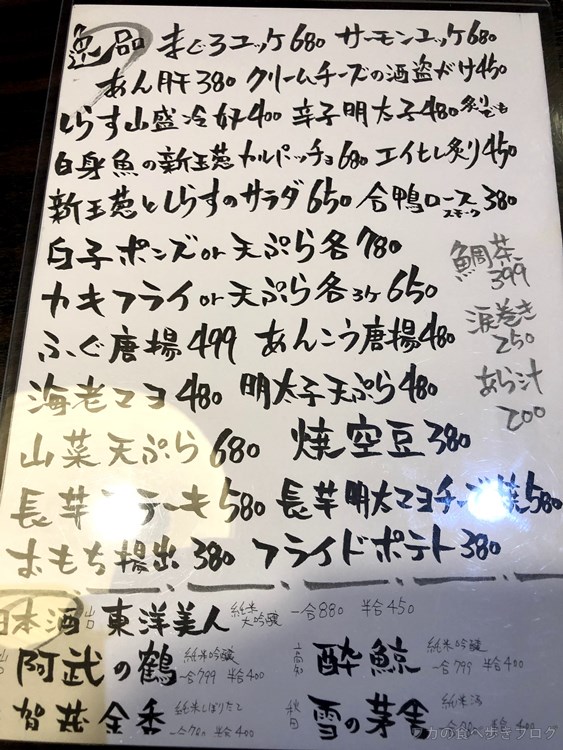 逸品 まぐろユッケ680 サーモンユッケ680
あん肝380 クリームチーズの酒盗がけ450
しらす山盛冷奴400 辛子明太子480 炙りでも
白身魚の新玉葱カルパッチョ680 エイヒレ炙り450
新玉葱としらすのサラダ650 合鴨ローススモーク380
白子ポンズor天ぷら各780
カキフライor天ぷら各3ケ650
ふぐ唐揚499 あんこう唐揚480
海老マヨ480 明太子天ぷら480
山菜天ぷら680 焼空豆380
長芋ステーキ580 長芋明太マヨチーズ焼580
おもち揚出380 フライドポテト380
鯛茶
399
涙巻き
250
あら汁
200
日本酒 山口 東洋美人 純米大吟醸 一合880 半合450
阿武の鶴 純米吟醸 一合799 半合400
高知 酔鯨 純米吟醸 一合799 半合400
賀茂金秀 純米しぼりたて 半合400
秋田 雪の茅舎 純米酒
の食べ歩きブログ